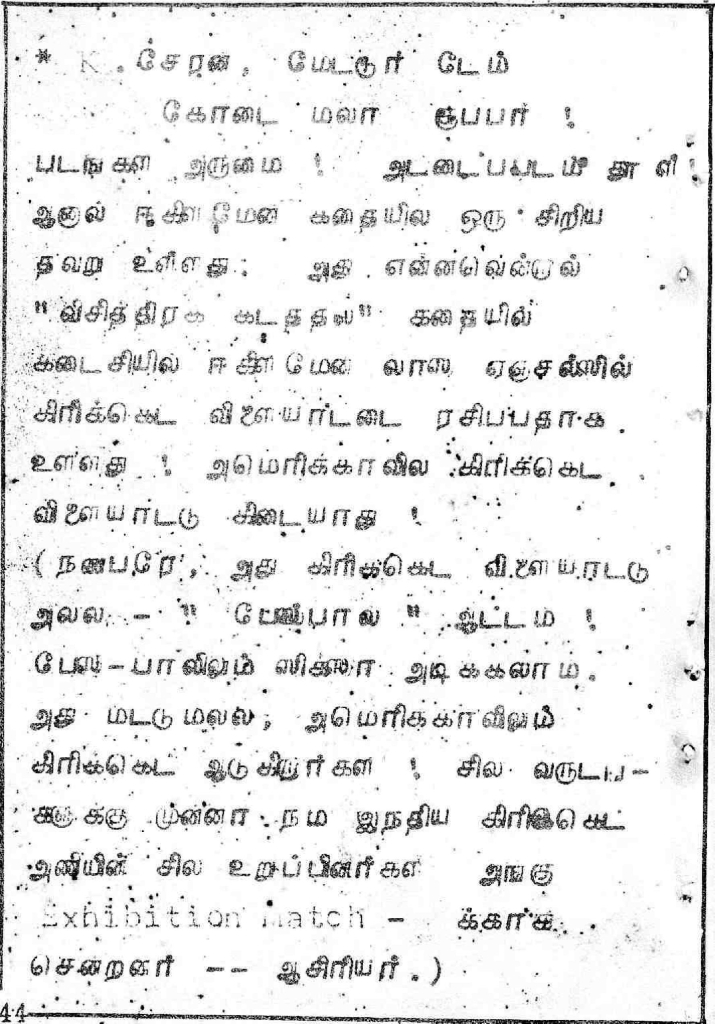 * K. சேரன், மேட்டூர் டேம்
கோடை மலர் சூப்பர் !
படங்கள் அருமை ! அட்டைப்படம் தூள் !
ஆனால் ஈகிள்மேன் கதையில் ஒரு சிறிய
தவறு உள்ளது: அது என்னவென்றால்
"விசித்திரக் கடத்தல்" கதையில்
கடைசியில் ஈகிள்மேன் லாஸ் ஏஞ்சல்ஸில்
கிரிக்கெட் விளையாட்டை ரசிப்பதாக
உள்ளது ! அமெரிக்காவில் கிரிக்கெட்
விளையாட்டு கிடையாது !
(நண்பரே, அது கிரிக்கெட் விளையாட்டு
அல்ல - "பேஸ்பால்" ஆட்டம் !
பேஸ்-பாலிலும் ஸிக்ஸர் அடிக்கலாம்.
அது மட்டுமல்ல, அமெரிக்காவிலும்
கிரிக்கெட் ஆடுகிறார்கள் ! சில வருடங்-
களுக்கு முன்னர் நம் இந்திய கிரிக்கெட்
அணியின் சில உறுப்பினர்கள் அங்கு
Exhibition Match - க்காக
சென்றனர் -- ஆசிரியர்.)
44